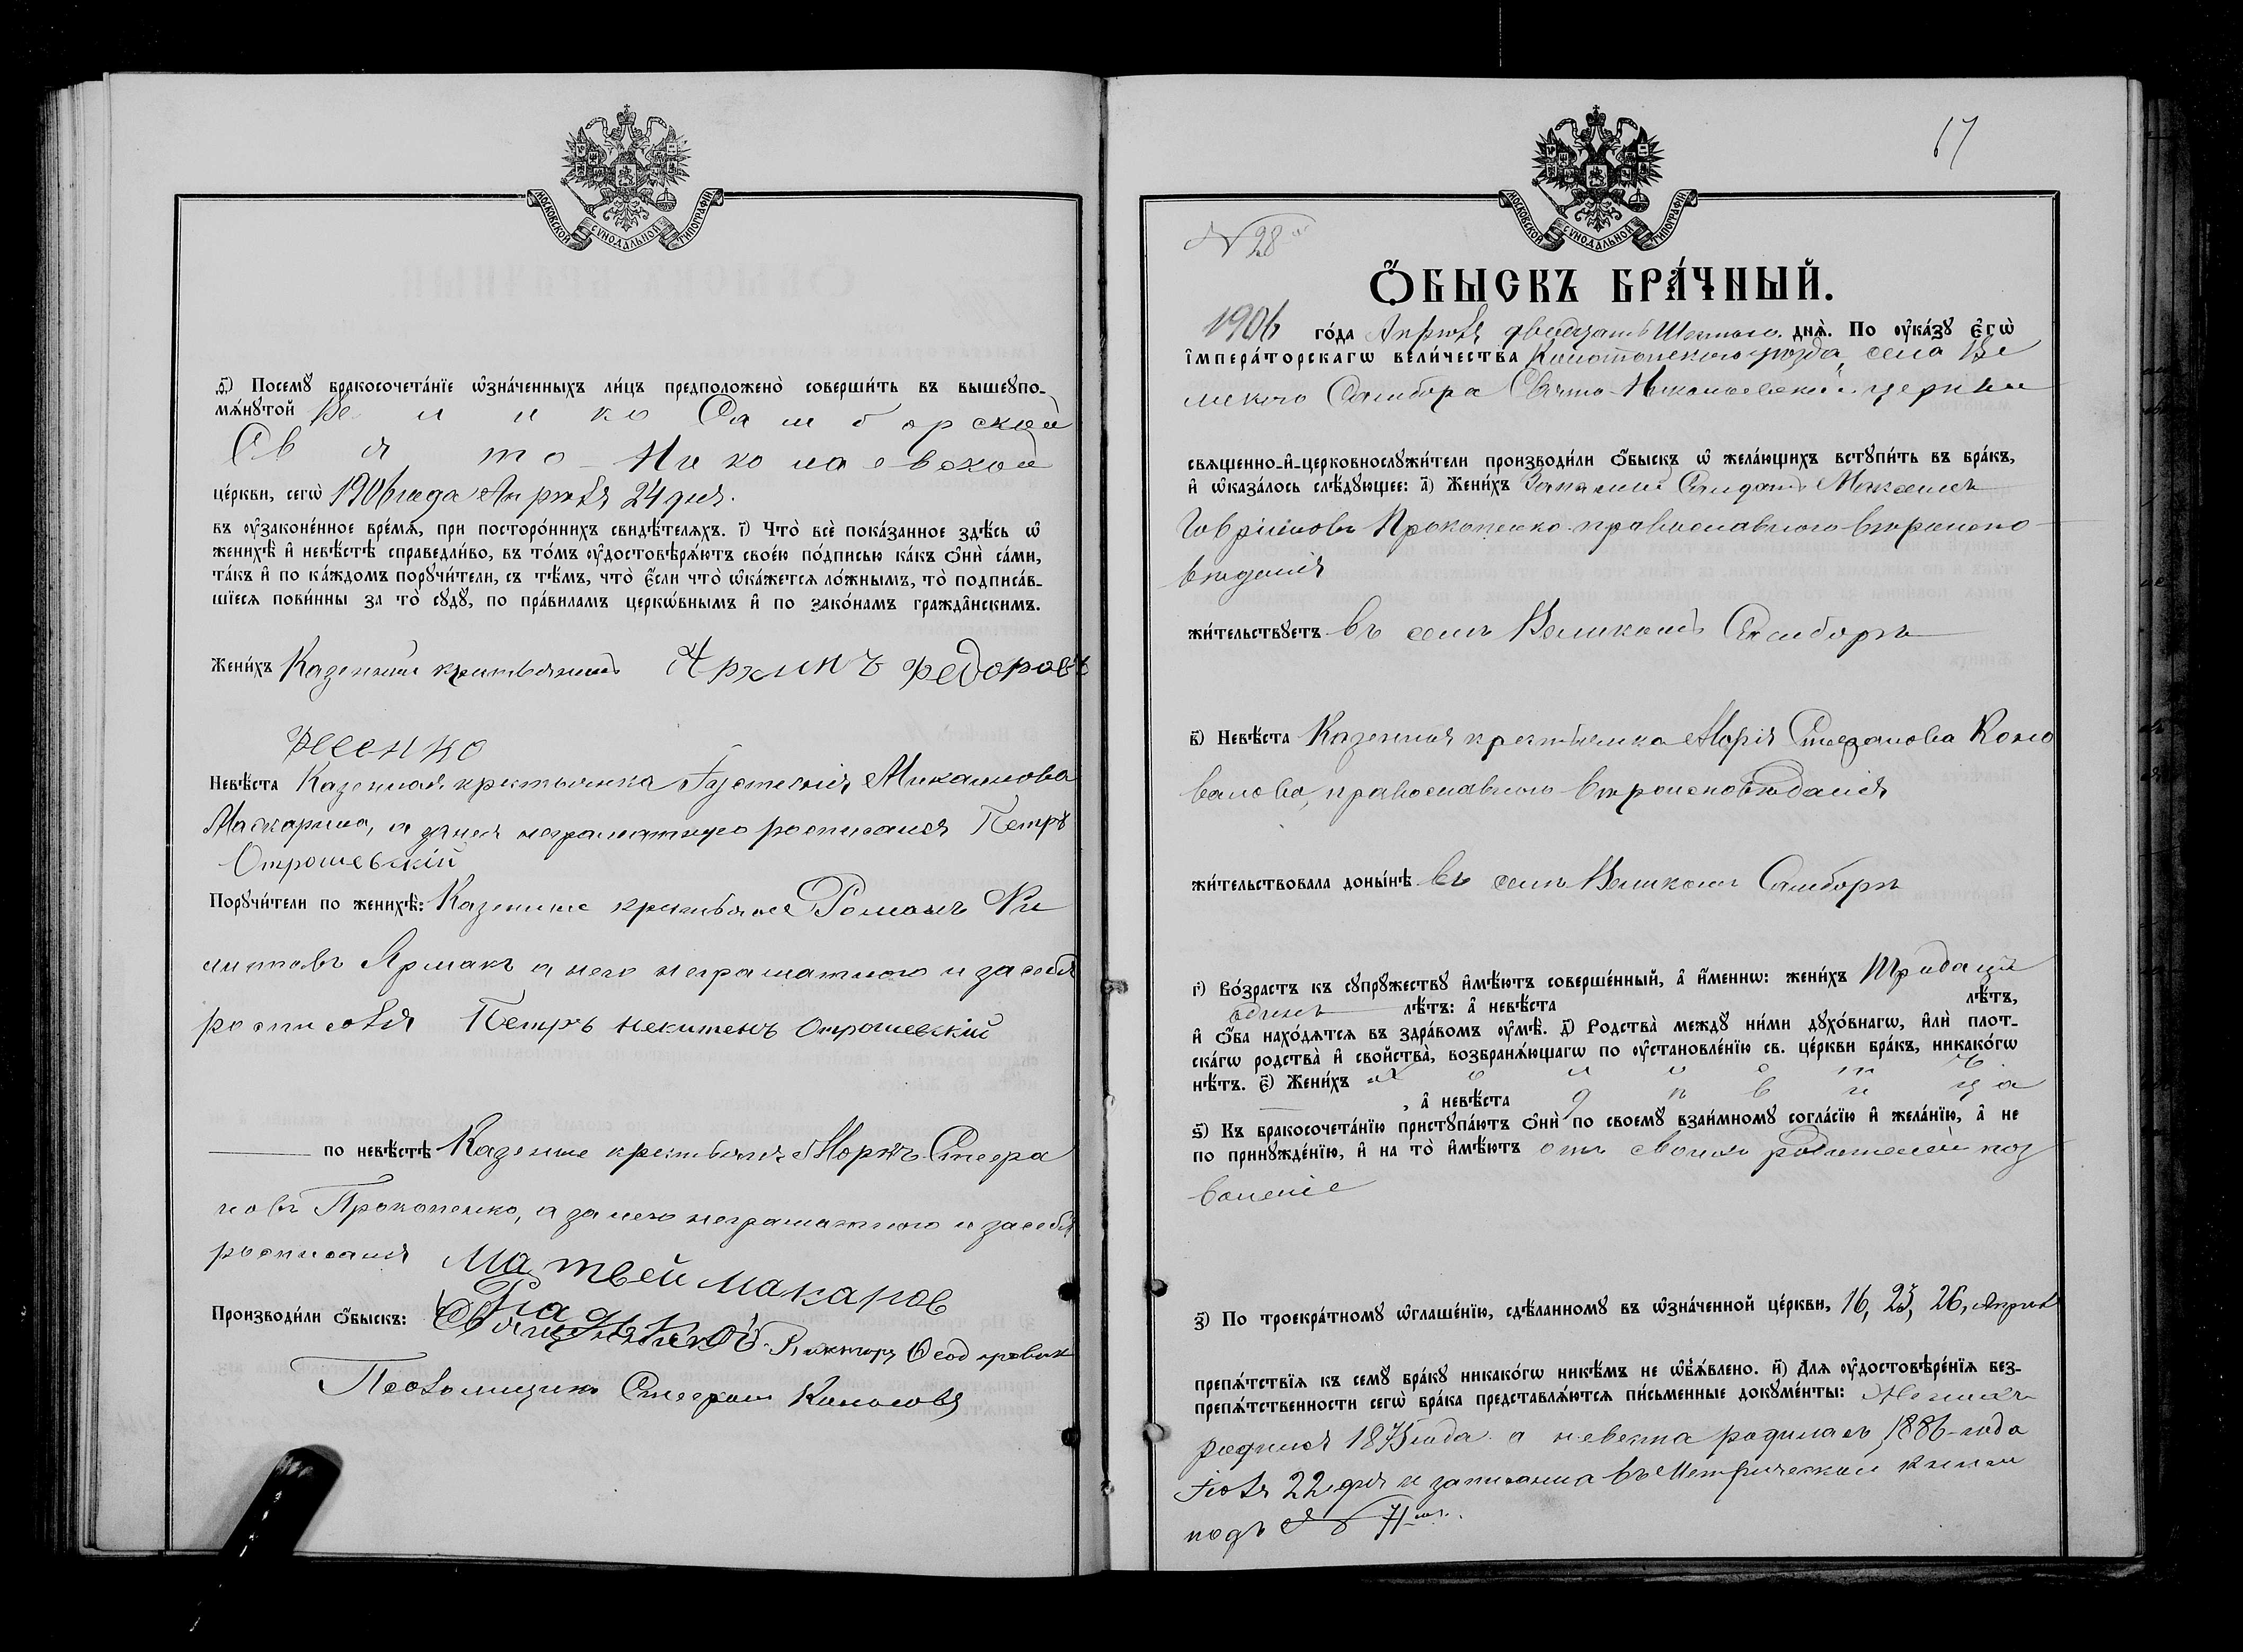 МОСКОВСКОЙ СѴНОДАЛЬНОЙ ТИПОГРАФІИ
д҃) Посемꙋ бракосочета́нїе ѡ҆зна́ченныхъ ли́цъ предположено̀ соверши́ть въ вышеꙋпо-
мѧ́нꙋтой Велико Самборской
Свято-Николаевской
це́ркви, сегѡ̀ 1906 года Апрѣля 24 дня.
въ ᲂу҆законе́нное вре́мѧ, при посторо́ннихъ свидѣ́телѧхъ. і҃) Что̀ всѐ пока́занное здѣ́сь ѡ҆
женихѣ̀ и҆ невѣ́стѣ справедли́во, въ то́мъ ᲂу҆достовѣрѧ́ютъ свое́ю по́дписью какъ ѻ҆нѝ са́ми,
та́къ и҆ по ка́ждомъ порꙋчи́тели, съ тѣ́мъ, что̀ є҆́сли что̀ ѡ҆ка́жетсѧ ло́жнымъ, то̀ подписа́в-
шїесѧ пови́нны за то̀ сꙋдꙋ̀, по пра́виламъ церкѡ́внымъ и҆ по зако́намъ гражда̑нскимъ.
Жени́хъ Казенный крестьянинъ Архипъ Федоровъ
Фесенко
Невѣ́ста Казенная крестьянка
а за нея неграматную росписался Петръ
Отрошевскій
Порꙋчи́тели по женихѣ̀: Казенные крестьяне Романъ Ни
китовъ Ярмакъ а него неграматного и за себя
росписался Петръ Никитенъ Отрошевскій
по невѣ́стѣ Казенные крестьяне Маркъ Стефа
новъ Прокопенко, а за него неграматного и за себя
росписался Матвей Макаров
Производи́ли ѻ҆́быскъ: Священникъ Викторъ
Псаломщикъ Стефанъ
17
МОСКОВСКОЙ СѴНОДАЛЬНОЙ ТИПОГРАФІИ
N 28й
Ѻ҆́БЫСКЪ БРА́ЧНЫЙ.
1906 го́да Апрѣля двадцать Шестого днѧ̀. По ᲂу҆ка́зꙋ є҆гѡ̀
і҆мпера́торскагѡ вели́чества Конотопского уѣзда, села Ве
ликого Самбора Свято-Николаевской церкви
свѧщенно-и҆-церковнослꙋжи́тели производи́ли ѻ҆́быскъ ѡ҆ жела́ющихъ встꙋпи́ть въ бра́къ,
и҆ ѡ҆каза́лось слѣ́дꙋющее: а҃) Жени́хъ Запасный Солдатъ Максимъ
Гавріиловъ Прокопенко православного вѣроиспо-
вѣданія
жи́тельствꙋетъ въ селѣ Великомъ Самборѣ
в҃) Невѣ́ста Казенная крестьянка Марія Стефанова Коно
валова, православного вѣроисповѣданія
жи́тельствовала доны́нѣ въ селѣ Великомъ Самборѣ
г҃) Во́зрастъ къ сꙋпрꙋ́жествꙋ и҆мѣ́ютъ соверше́нный, а҆ и҆́меннѡ: жени́хъ Тридцать
одинъ лѣ́тъ: а҆ невѣ́ста лѣ́тъ,
и҆ ѻ҆́ба нахо́дѧтсѧ въ здра́вомъ ᲂу҆мѣ̀. д҃) Родства̀ междꙋ ни́ми дꙋхо́внагѡ, и҆лѝ плот-
ска́гѡ родства̀ и҆ свойства̀, возбранѧ́ющагѡ по ᲂу҆становле́нїю св. це́ркви бра́къ, никако́гѡ
нѣ́тъ. є҃) Жени́хъ холостъ
, а҆ невѣ́ста дѣвица
ѕ҃) Къ бракосочета́нїю пристꙋпа́ютъ ѻ҆нѝ по своемꙋ̀ взаи́мномꙋ согла́сїю и҆ жела́нїю, а҆ не
по принꙋжде́нїю, и҆ на то̀ и҆мѣ́ютъ отъ своихъ родителей поз
воленіе
з҃) По троекра́тномꙋ ѡ҆глаше́нїю, сдѣ́ланномꙋ въ ѡ҆зна́ченной це́ркви, 16, 23, 26, Апрѣля
препѧ́тствїѧ къ семꙋ̀ бра́кꙋ никако́гѡ никѣ́мъ не ѡ҆б̾ѧ́влено. и҃) Длѧ ᲂу҆достовѣре́нїѧ без-
препѧ́тственности сегѡ̀ бра́ка представлѧ́ютсѧ пи́сьменные докꙋме́нты: Женихъ
родился 1875 года а невеста родилась 1886 года
Іюля 22 дня и записанна въ Метрической книги
подъ № 71мъ.